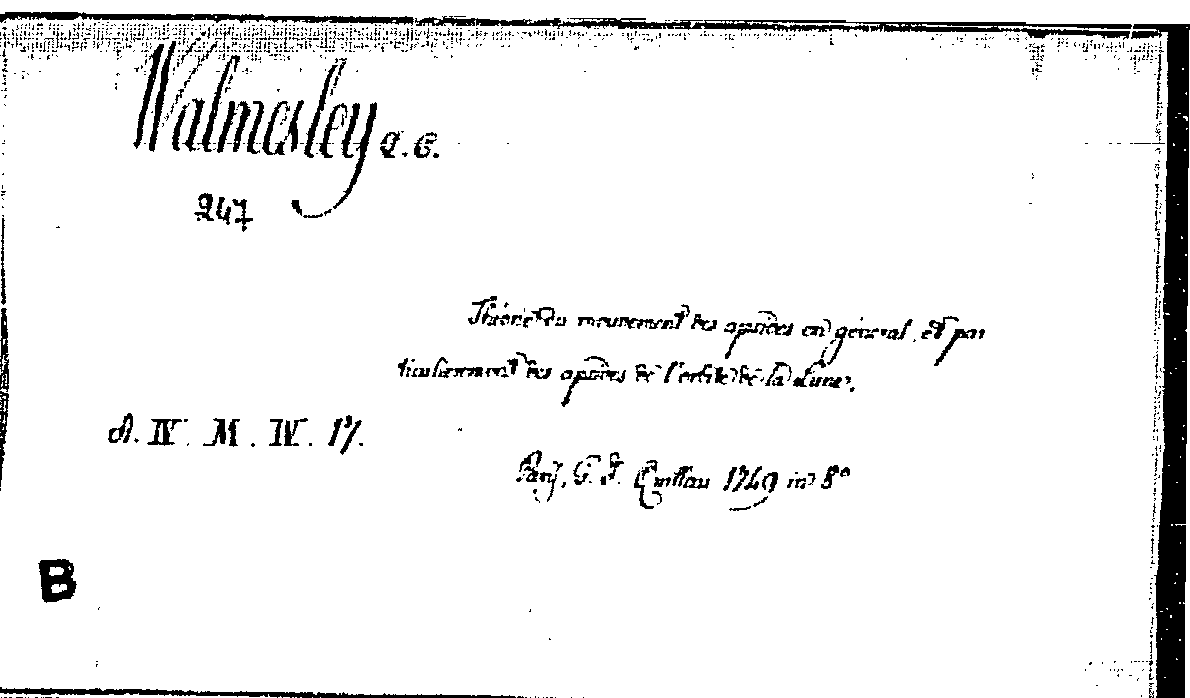 Walmesley
247
Théorie du mouvement des apsides en général, et par
ticulierement des apsides de l'orbite de la Lune.
A. IV. M. IV. 17.
Paris, G. F. Quillau 1749 in 8°
B